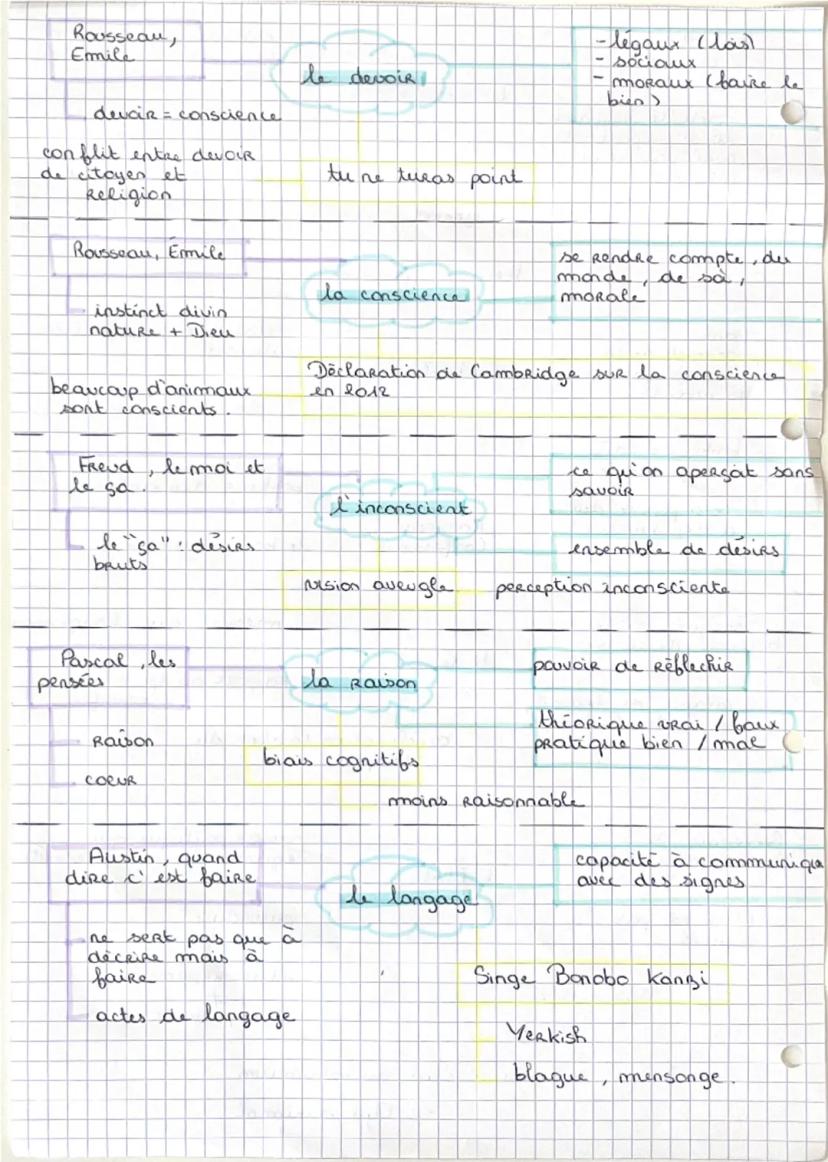 Rousseau,
Emile
le devoir
- légaux (lois)
- sociaux
- moraux (faire le
bien)
devoir = conscience
conflit entre devoir
de citoyen et
religion
tu ne turas point
Rousseau, Émile
la conscience
se rendre compte, du
monde, de soi,
morale
instinct divin
nature + Dieu
Déclaration de Cambridge sur la conscience
en 2012
beaucoup d'animaux
sont conscients.
Freud, le moi et
le ça.
l'inconscient
ce qu'on aperçoit sans
savoir
le "ça" : désirs
bruts
ensemble de désirs
vision aveugle
perception inconsciente
Pascal, les
pensées
la raison
pouvoir de réflechir
théorique vrai / faux
pratique bien / mal
raison
coeur
biais cognitifs
moins raisonnable
Austin, quand
dire c'est faire
le langage
capacité à communique
avec des signes
ne sert pas que à
décrire mais à
faire
actes de langage
Singe Bonobo Kanzi
Yerkish
blague, mensonge.